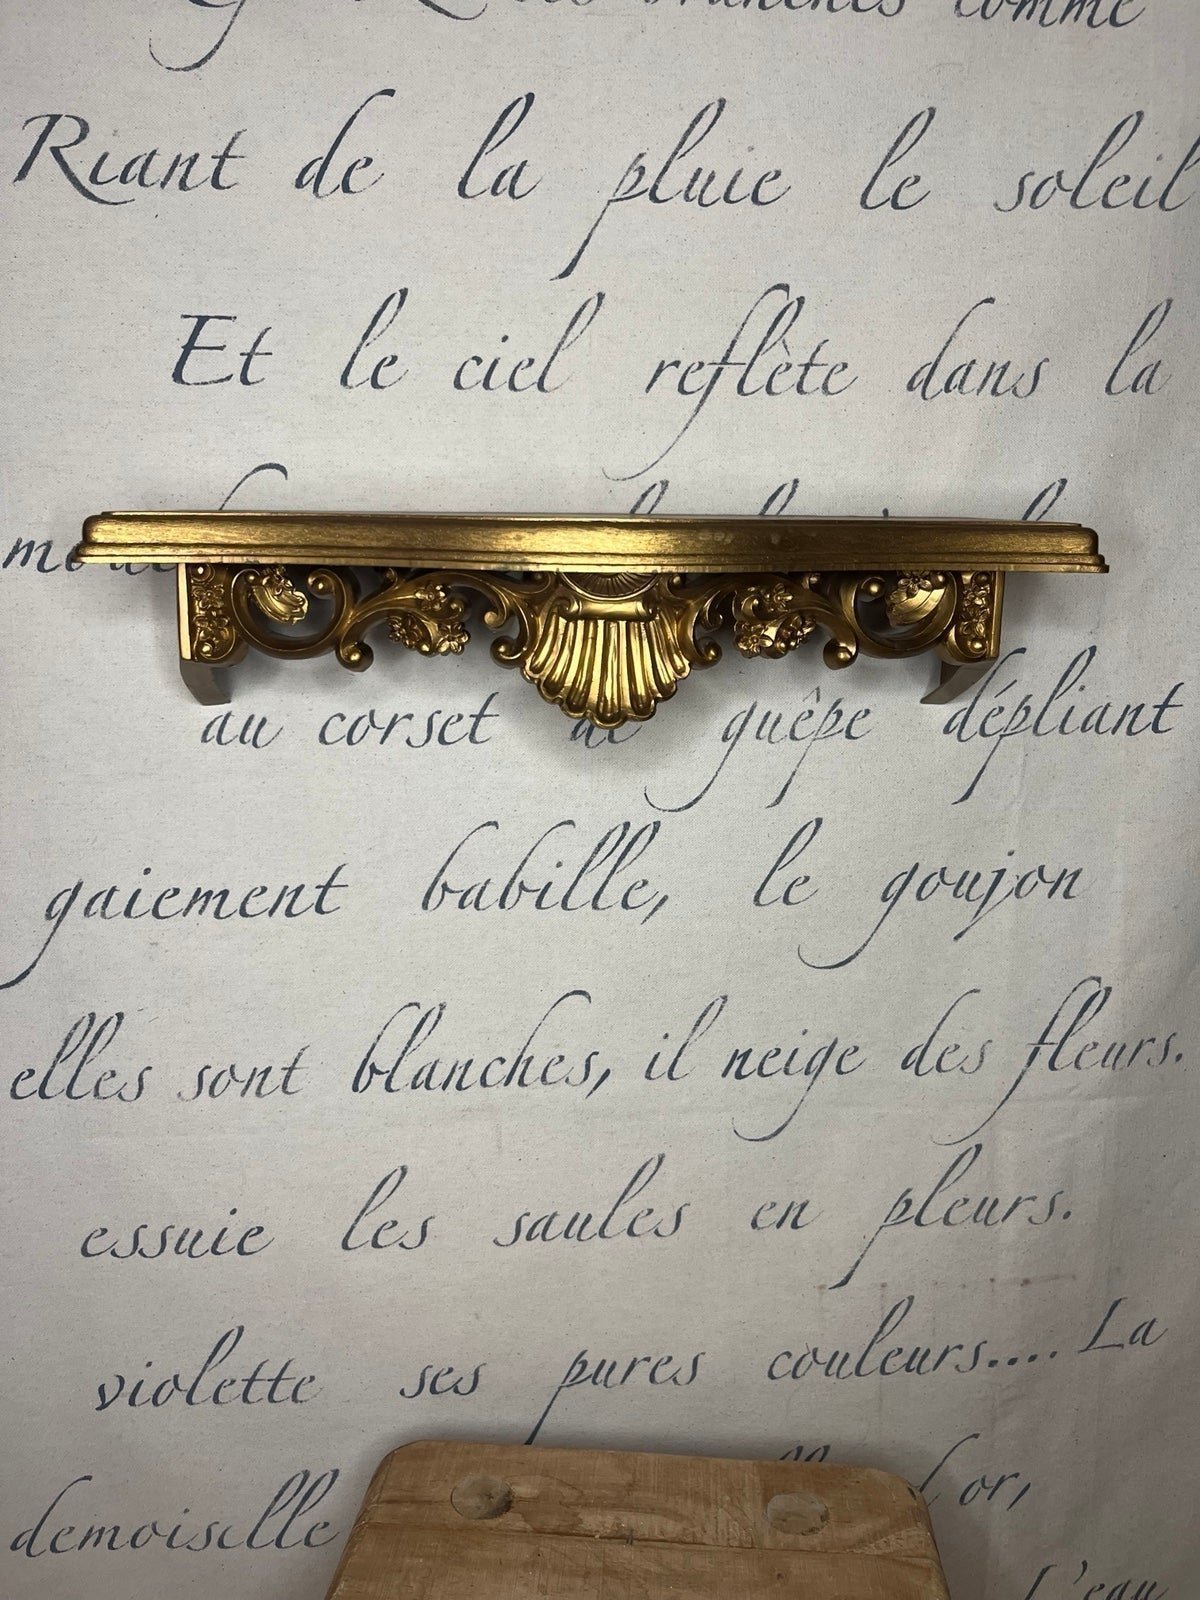 branches comme
Riant de la pluie le soleil
Et le ciel reflète dans la
au corset de guêpe dépliant
gaiement babille, le goujon
elles sont blanches, il neige des fleurs.
essuie les saules en pleurs.
violette ses pures couleurs.... La
demoiselle d'or,
L'eau